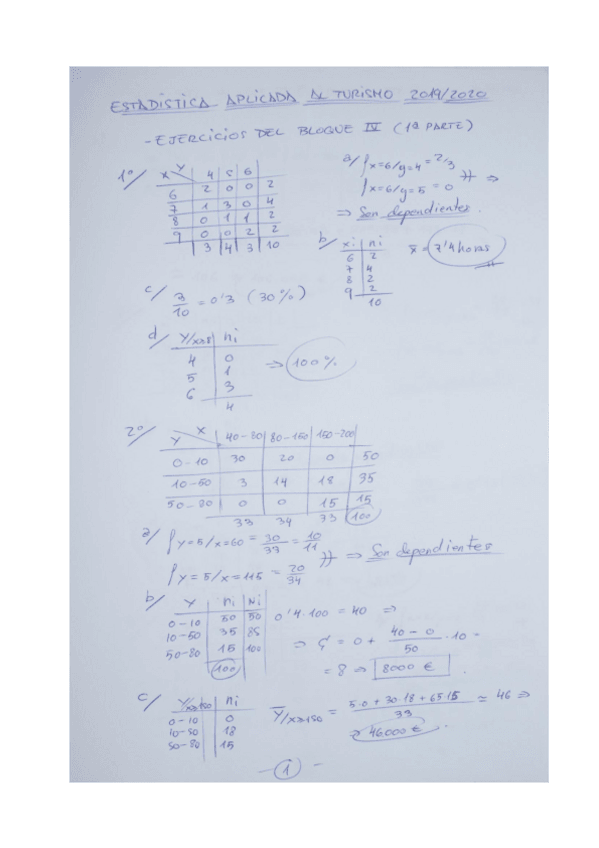 ESTADÍSTICA APLICADA AL TURISMO 2019/2020
- EJERCICIOS DEL BLOQUE IV (1ª PARTE)
1º/
X Y 4 5 6
6 2 0 0 2
7 1 3 0 4
8 0 1 1 2
9 0 0 2 2
3 4 3 10
a/ fx=6/y=4 = 2/3
fx=6/y=5 = 0
≠ ⇒
⇒ Son dependientes.
b/ xi ni
6 2
7 4
8 2
9 2
10
x̄ = 7'4 horas
c/ 3/10 = 0'3 (30%)
d/ Y/x≥8 ni
4 0
5 1
6 3
4
⇒ 100%
2º/
Y X 40-80 80-150 150-200
0-10 30 20 0 50
10-50 3 14 18 35
50-80 0 0 15 15
33 34 33 100
a/ fy=5/x=60 = 30/33 = 10/11
fy=5/x=115 = 20/34
≠ ⇒ Son dependientes
b/ Y ni Ni
0-10 50 50
10-50 35 85
50-80 15 100
100
0'4·100 = 40 ⇒
⇒ Ç = 0 + (40-0)/50 · 10 =
= 8 ⇒ 8000 €
c/ Y/x≥150 ni
0-10 0
10-50 18
50-80 15
Ȳ/x≥150 = (5·0 + 30·18 + 65·15)/33 ≃ 46 ⇒
⇒ 46.000 €
- 1 -